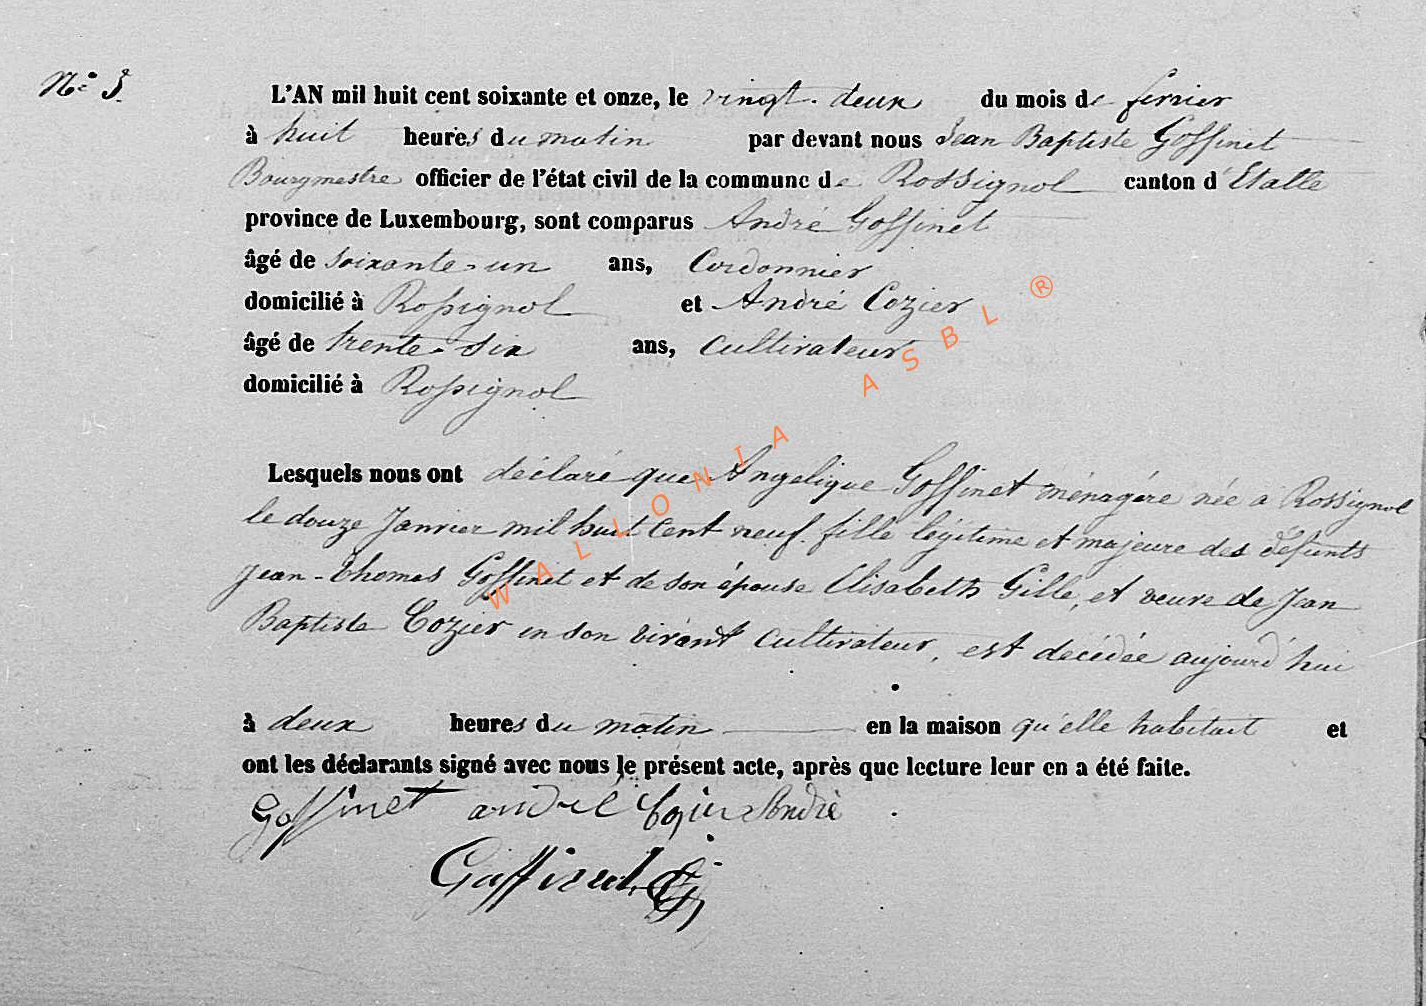 N° 3.
L'AN mil huit cent soixante et onze, le vingt-deux du mois de fevrier
à huit heures du matin par devant nous Jean Baptiste Goffinet
Bourgmestre officier de l'état civil de la commune de Rossignol canton d'Etalle
province de Luxembourg, sont comparus André Goffinet
âgé de soixante-un ans, Cordonnier
domicilié à Rossignol et André Cozier
âgé de trente-six ans, cultivateur
domicilié à Rossignol
Lesquels nous ont déclaré que Angelique Goffinet ménagére née a Rossignol
le douze Janvier mil huit cent neuf. fille légitime et majeure des défunts
Jean-Thomas Goffinet et de son épouse Elisabeth Gille, et veuve de Jean
Baptiste Cozier en son vivant cultivateur, est décédée aujourd'hui
à deux heures du matin en la maison qu'elle habitait et
ont les déclarants signé avec nous le présent acte, après que lecture leur en a été faite.
Goffinet andré Cozier André
Goffinet
WALLONIA ASBL ®